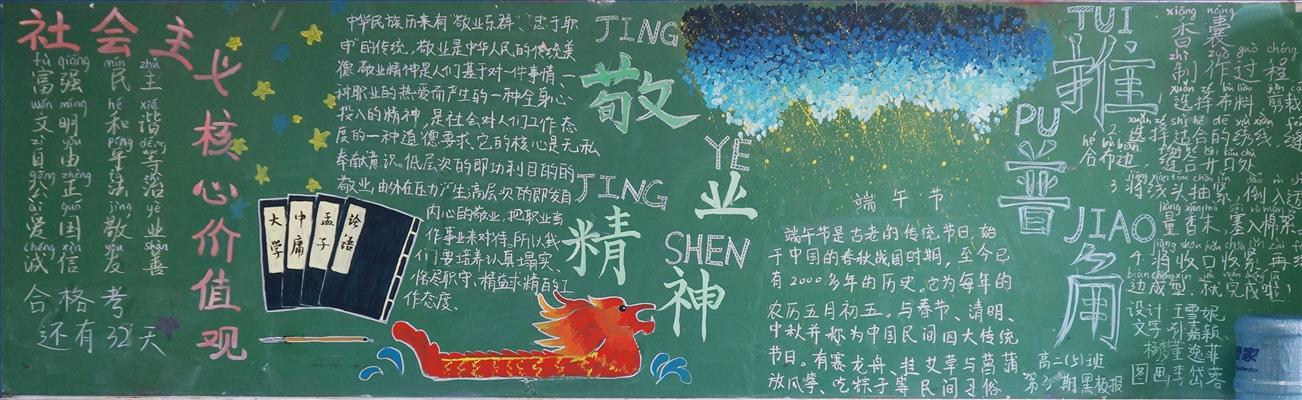 社会主义核心价值观
fù qiáng mín zhǔ
富强 民主
wén míng hé xié
文明 和谐
zì yóu píng děng
自由 平等
gōng zhèng fǎ zhì
公正 法治
ài guó jìng yè
爱国 敬业
chéng xìn yǒu shàn
诚信 友善
合格考
还有32天
中华民族历来有"敬业乐群、忠于职
守"的传统,敬业是中华人民的传统美
德.敬业精神是人们基于对一件事情、一
种职业的热爱而产生的一种全身心
投入的精神,是社会对人们工作态
度的一种道德要求.它的核心是无私
奉献意识。低层次的即功利目的的
敬业,由外在压力产生;高层次的即发自
内心的敬业,把职业当
作事业来对待.所以我
们要培养认真踏实、
恪尽职守、精益求精的工
作态度。
大学
中庸
孟子
论语
JING
敬
YE
业
JING
精
SHEN
神
端午节
端午节是古老的传统节日,始
于中国的春秋战国时期,至今已
有2000多年的历史。它为每年的
农历五月初五。与春节、清明、
中秋并称为中国民间四大传统
节日。有赛龙舟、挂艾草与菖蒲
放风筝、吃粽子等民间习俗.
TUI
推
PU
普
JIAO
角
xiāng náng
香囊
zhì zuò guò chéng
制作过程
1.选择布料,剪裁
2.选择适合的绣线,缝
合布边,缝合开口处
3.将线头抽紧,倒入适
量香朱,塞入棉絮
4.将收口收紧,再
边成型,就完成啦!
设计 王雪妮
文写 孙嘉颖
杨董逸菲
图画 李岱蓉
高二(5)班
第3期黑板报
管家